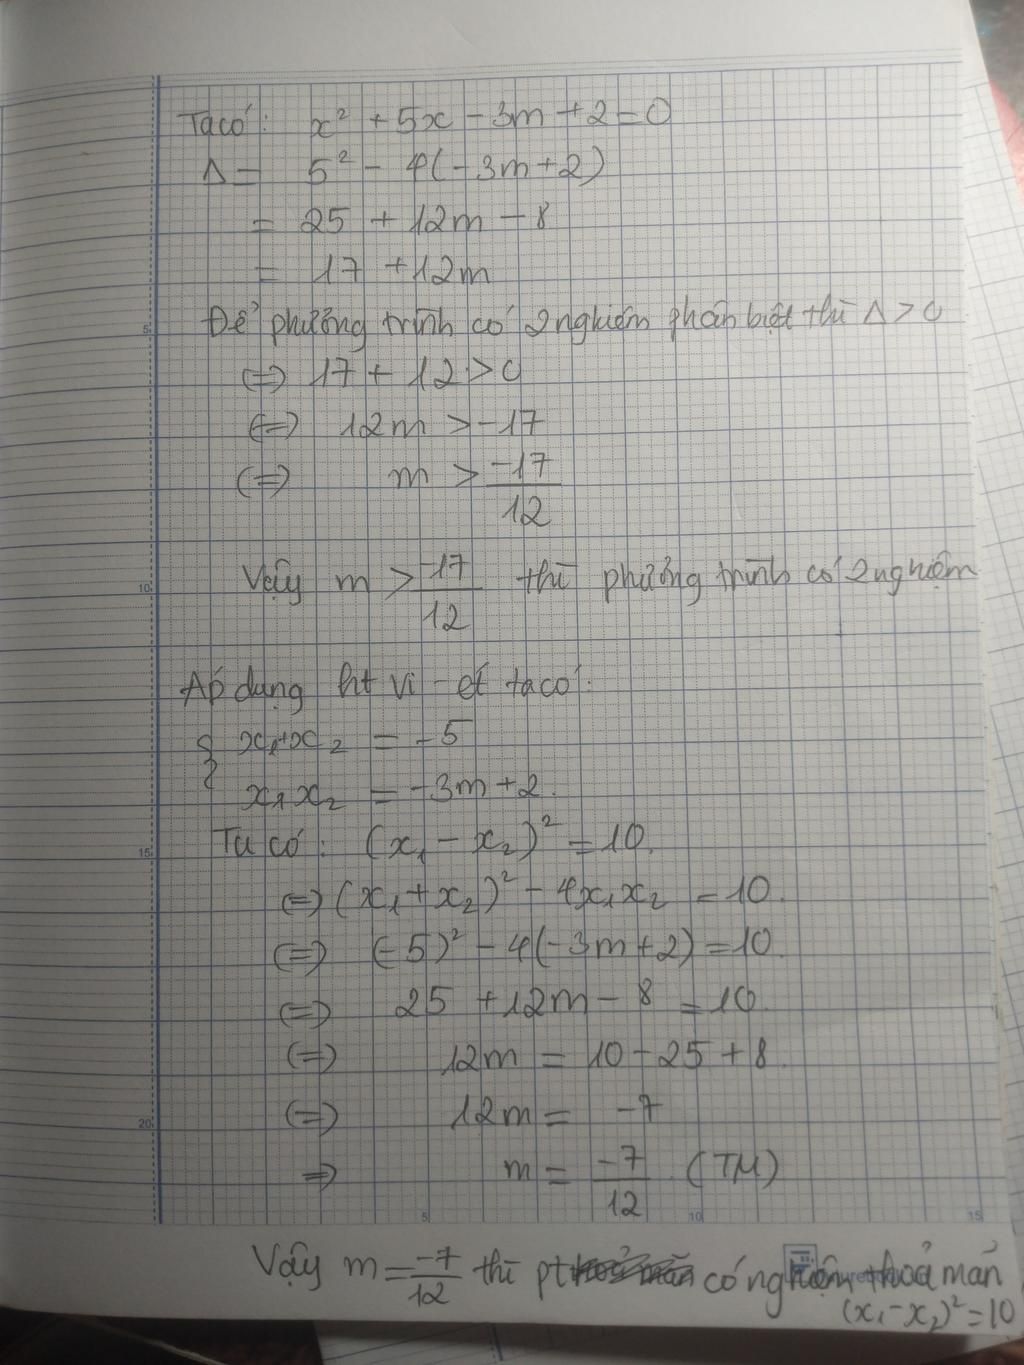 Ta có: x² + 5x - 3m + 2 = 0
Δ = 5² - 4(-3m+2)
= 25 + 12m - 8
= 17 + 12m
5
Để phương trình có 2 nghiệm phân biệt thì Δ > 0
(=) 17 + 12 > 0
(=) 12m > -17
(=) m > -17/12
10
Vậy m > -17/12 thì phương trình có 2 nghiệm
Áp dụng ht Vi-et ta có:
{ x₁+x₂ = -5
x₁x₂ = -3m+2.
15
Ta có: (x₁ - x₂)² = 10.
(=) (x₁+x₂)² - 4x₁x₂ = 10.
(=) (-5)² - 4(-3m+2) = 10.
(=) 25 + 12m - 8 = 10.
(=) 12m = 10 - 25 + 8.
20
(=) 12m = -7
=) m = -7/12 (TM)
5 10 15
Vậy m = -7/12 thì pt có nghiệm thoả mãn
(x₁-x₂)² = 10